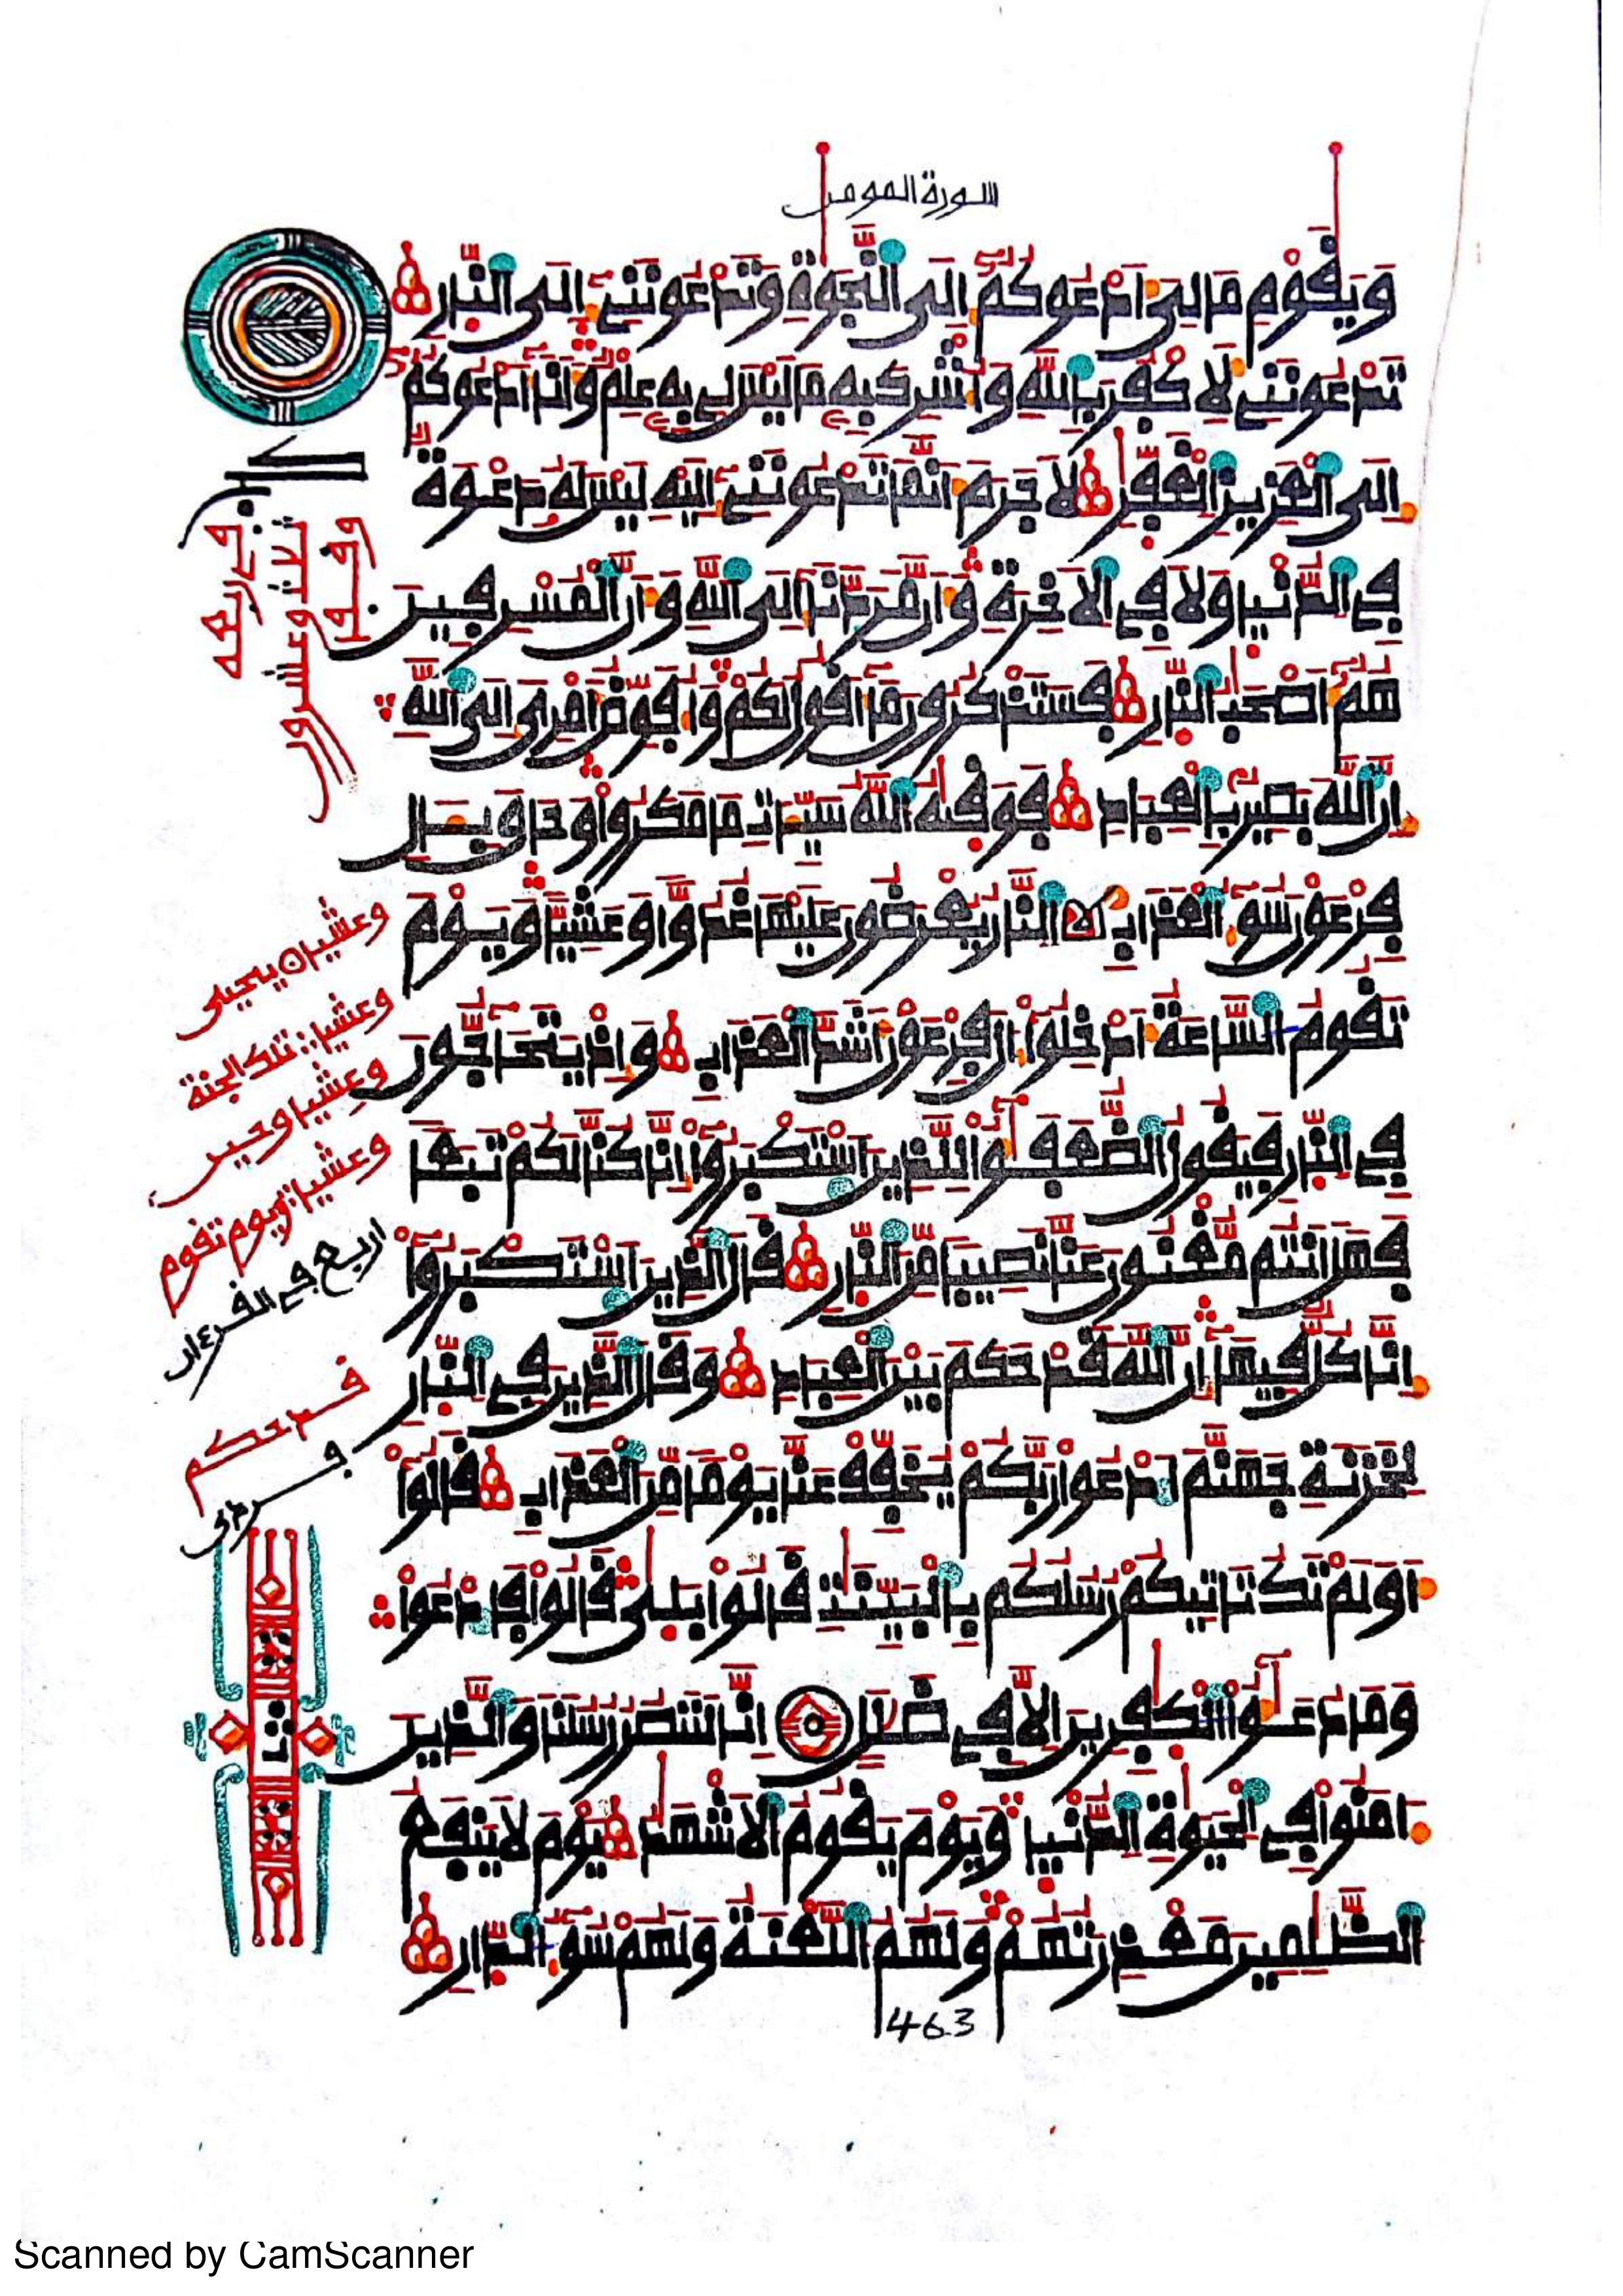 سورة المومن
وَيَقَوْمِ مَا لِيَ أَدْعُوكُمُ إِلَى النَّجَوةِ وَتَدْعُونَنِي إِلَى النّارِ
تَدْعُونَنِي لِأَكْفُرَ بِاللَّهِ وَأُشْرِكَ بِهِ مَا لَيْسَ لِي بِهِ عِلْمٌ وَأَنَا أَدْعُوكُمُ
إِلَى الْعَزِيزِ الْغَفّرِ لَا جَرَمَ أَنَّمَا تَدْعُونَنِي إِلَيْهِ لَيْسَ لَهُ دَعْوَةٌ
فِي الدُّنْيا وَلَا فِي الْأَخِرَةِ وَأَنَّ مَرَدَّنَا إِلَى اللَّهِ وَأَنَّ الْمُسْرِفِينَ
هُمُ أَصْحَبُ النّارِ فَسَتَذْكُرُونَ مَا أَقُولُ لَكُمْ وَأُفَوِّضُ أَمْرِيَ إِلَى اللَّهِ
إِنَّ اللَّهَ بَصِيرٌ بِالْعِبَادِ فَوَقَيهُ اللَّهُ سَيِّئَاتِ مَا مَكَرُوا وَحَاقَ بِئَالِ
فِرْعَوْنَ سُوءُ الْعَذَابِ النَّارُ يُعْرَضُونَ عَلَيْهَا غُدُوّاً وَعَشِيّاً وَيَوْمَ
تَقُومُ السَّاعَةُ أَدْخِلُوا ءَالَ فِرْعَوْنَ أَشَدَّ الْعَذَابِ وَإِذْ يَتَحَاجُّونَ
فِي النّارِ فَيَقُولُ الضُّعَفَؤُا لِلَّذِينَ اسْتَكْبَرُوا إِنَّا كُنَّا لَكُمْ تَبَعاً
فَهَلَ أَنْتُم مُّغْنُونَ عَنَّا نَصِيباً مِّنَ النّارِ قَالَ الَّذِينَ اسْتَكْبَرُوا
إِنَّا كُلٌّ فِيهَا إِنَّ اللَّهَ قَدْ حَكَمَ بَيْنَ الْعِبَادِ وَقَالَ الَّذِينَ فِي النّارِ
لِخَزَنَةِ جَهَنَّمَ ادْعُوا رَبَّكُمْ يُخَفِّفْ عَنَّا يَوْماً مِّنَ الْعَذَابِ قَالُوا
أَوَلَمْ تَكُ تَأْتِيكُمْ رُسُلُكُم بِالْبَيِّنَتِ قَالُوا بَلَى قَالُوا فَادْعُوا
وَمَا دُعَؤُا الْكَفِرِينَ إِلَّا فِي ضَلَلٍ إِنَّا لَنَنصُرُ رُسُلَنَا وَالَّذِينَ
ءَامَنُوا فِي الْحَيَوةِ الدُّنْيا وَيَوْمَ يَقُومُ الْأَشْهَدُ يَوْمَ لَا تَنفَعُ
الظَّلِمِينَ مَعْذِرَتُهُمْ وَلَهُمُ اللَّعْنَةُ وَلَهُمْ سُوءُ الدّارِ
463
وفر
ثلاث وعشرون
في اربعه
وعشيا ن يحيى
وعشيا: تلك الجنة
وعشيا وحين
وعشيا: ويوم تقوم
اربع في القرءان
قد حكم
فردى
Scanned by CamScanner